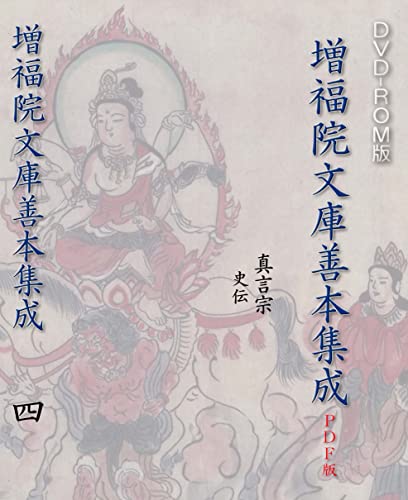 DVD-ROM版
増福院文庫善本集成
PDF版
真言宗
史伝
増福院文庫善本集成
四